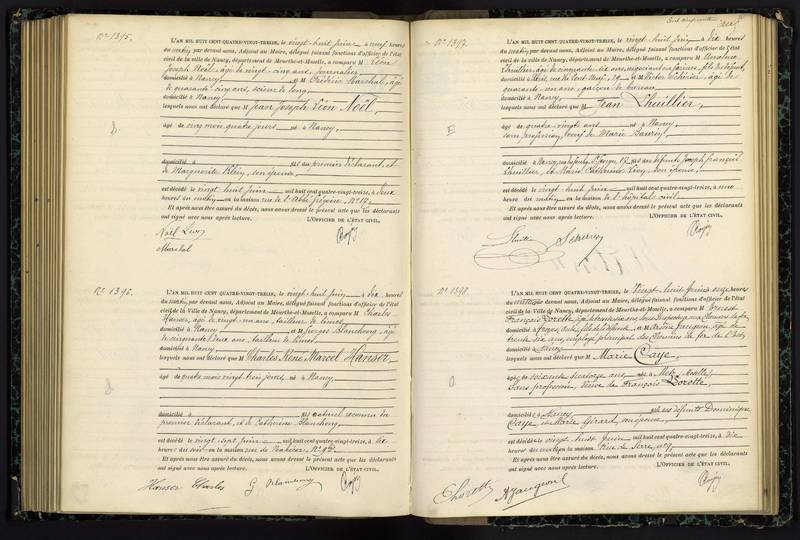 N° 1395.
L'AN MIL HUIT CENT QUATRE-VINGT-TREIZE, le vingt-huit juin à neuf heures
du matin par devant nous, Adjoint au Maire, délégué faisant fonctions d'officier de l'état
civil de la ville de Nancy, département de Meurthe-et-Moselle, a comparu M Léon
Joseph Noël, âgé de vingt-cinq ans, journalier
domicilié à Nancy et M Marchal, âgé
de quarante cinq ans, scieur de long
domicilié à Nancy
lesquels nous ont déclaré que M Jean Joseph Léon Noël,
âgé de cinq mois quatre jours né à Nancy,
domicilié à fils du premier déclarant, et
de Marguerite Klein, son épouse,
est décédé le vingt-huit juin mil huit cent quatre-vingt-treize, à deux
heures du matin en la maison rue de l'Abbé Grégoire, N° 17.
Et après nous être assuré du décès, nous avons dressé le présent acte que les déclarants
ont signé avec nous après lecture. L'OFFICIER DE L'ÉTAT CIVIL,
Noël Léon
Marchal
N° 1396.
L'AN MIL HUIT CENT QUATRE-VINGT-TREIZE, le vingt-huit juin à dix heures
du matin par devant nous, Adjoint au Maire, délégué faisant fonctions d'officier de l'état
civil de la ville de Nancy, département de Meurthe-et-Moselle, a comparu M Charles
Hanser, âgé de vingt-un ans, tailleur de limes
domicilié à Nancy et M Georges Blancheng, âgé
de cinquante deux ans, tailleur de limes
domicilié à Nancy
lesquels nous ont déclaré que M Charles René Marcel Hanser,
âgé de quatre mois vingt-trois jours né à Nancy
domicilié à fils naturel reconnu du
premier déclarant, et de Catherine Blancheng,
est décédé le vingt-sept juin mil huit cent quatre-vingt-treize, à dix
heures du soir en la maison rue de
Et après nous être assuré du décès, nous avons dressé le présent acte que les déclarants
ont signé avec nous après lecture. L'OFFICIER DE L'ÉTAT CIVIL,
Hanser Charles
N° 1397.
L'AN MIL HUIT CENT QUATRE-VINGT-TREIZE, le vingt-huit juin à dix heures
du matin par devant nous, Adjoint au Maire, délégué faisant fonctions d'officier de l'état
civil de la ville de Nancy, département de Meurthe-et-Moselle, a comparu M
Lhuillier, âgé de cinquante-six ans, négociant en farines, fils du défunt,
domicilié à et M Victor âgé de
quarante-un ans, garçon de bureau
domicilié à Nancy
lesquels nous ont déclaré que M Jean Lhuillier,
âgé de quatre-vingts ans né à Nancy,
sans profession, veuf de Marie
domicilié à Nancy, fils des défunts Joseph François
Lhuillier, et Marie Catherine son épouse,
est décédé le vingt-huit juin mil huit cent quatre-vingt-treize, à une
heure du matin en la maison de l'hôpital civil
Et après nous être assuré du décès, nous avons dressé le présent acte que les déclarants
ont signé avec nous après lecture. L'OFFICIER DE L'ÉTAT CIVIL,
N° 1398.
L'AN MIL HUIT CENT QUATRE-VINGT-TREIZE, le vingt-huit juin à onze heures
du matin par devant nous, Adjoint au Maire, délégué faisant fonctions d'officier de l'état
civil de la ville de Nancy, département de Meurthe-et-Moselle, a comparu M Ernest
François Lorette,
domicilié à fils de la défunte, et M Jaugeon, âgé de
trente six ans, employé principal des Chemins de fer de l'Est
domicilié à Nancy
lesquels nous ont déclaré que M Marie Caye,
âgée de soixante quatorze ans née à Metz (Moselle)
Sans profession, Veuve de François Lorette,
domiciliée à Nancy fille des défunts Dominique
Caye et Marie Girard, son épouse,
est décédée le vingt huit juin mil huit cent quatre-vingt-treize, à dix
heures du matin en la maison Rue de Serre, n° 9
Et après nous être assuré du décès, nous avons dressé le présent acte que les déclarants
ont signé avec nous après lecture. L'OFFICIER DE L'ÉTAT CIVIL,